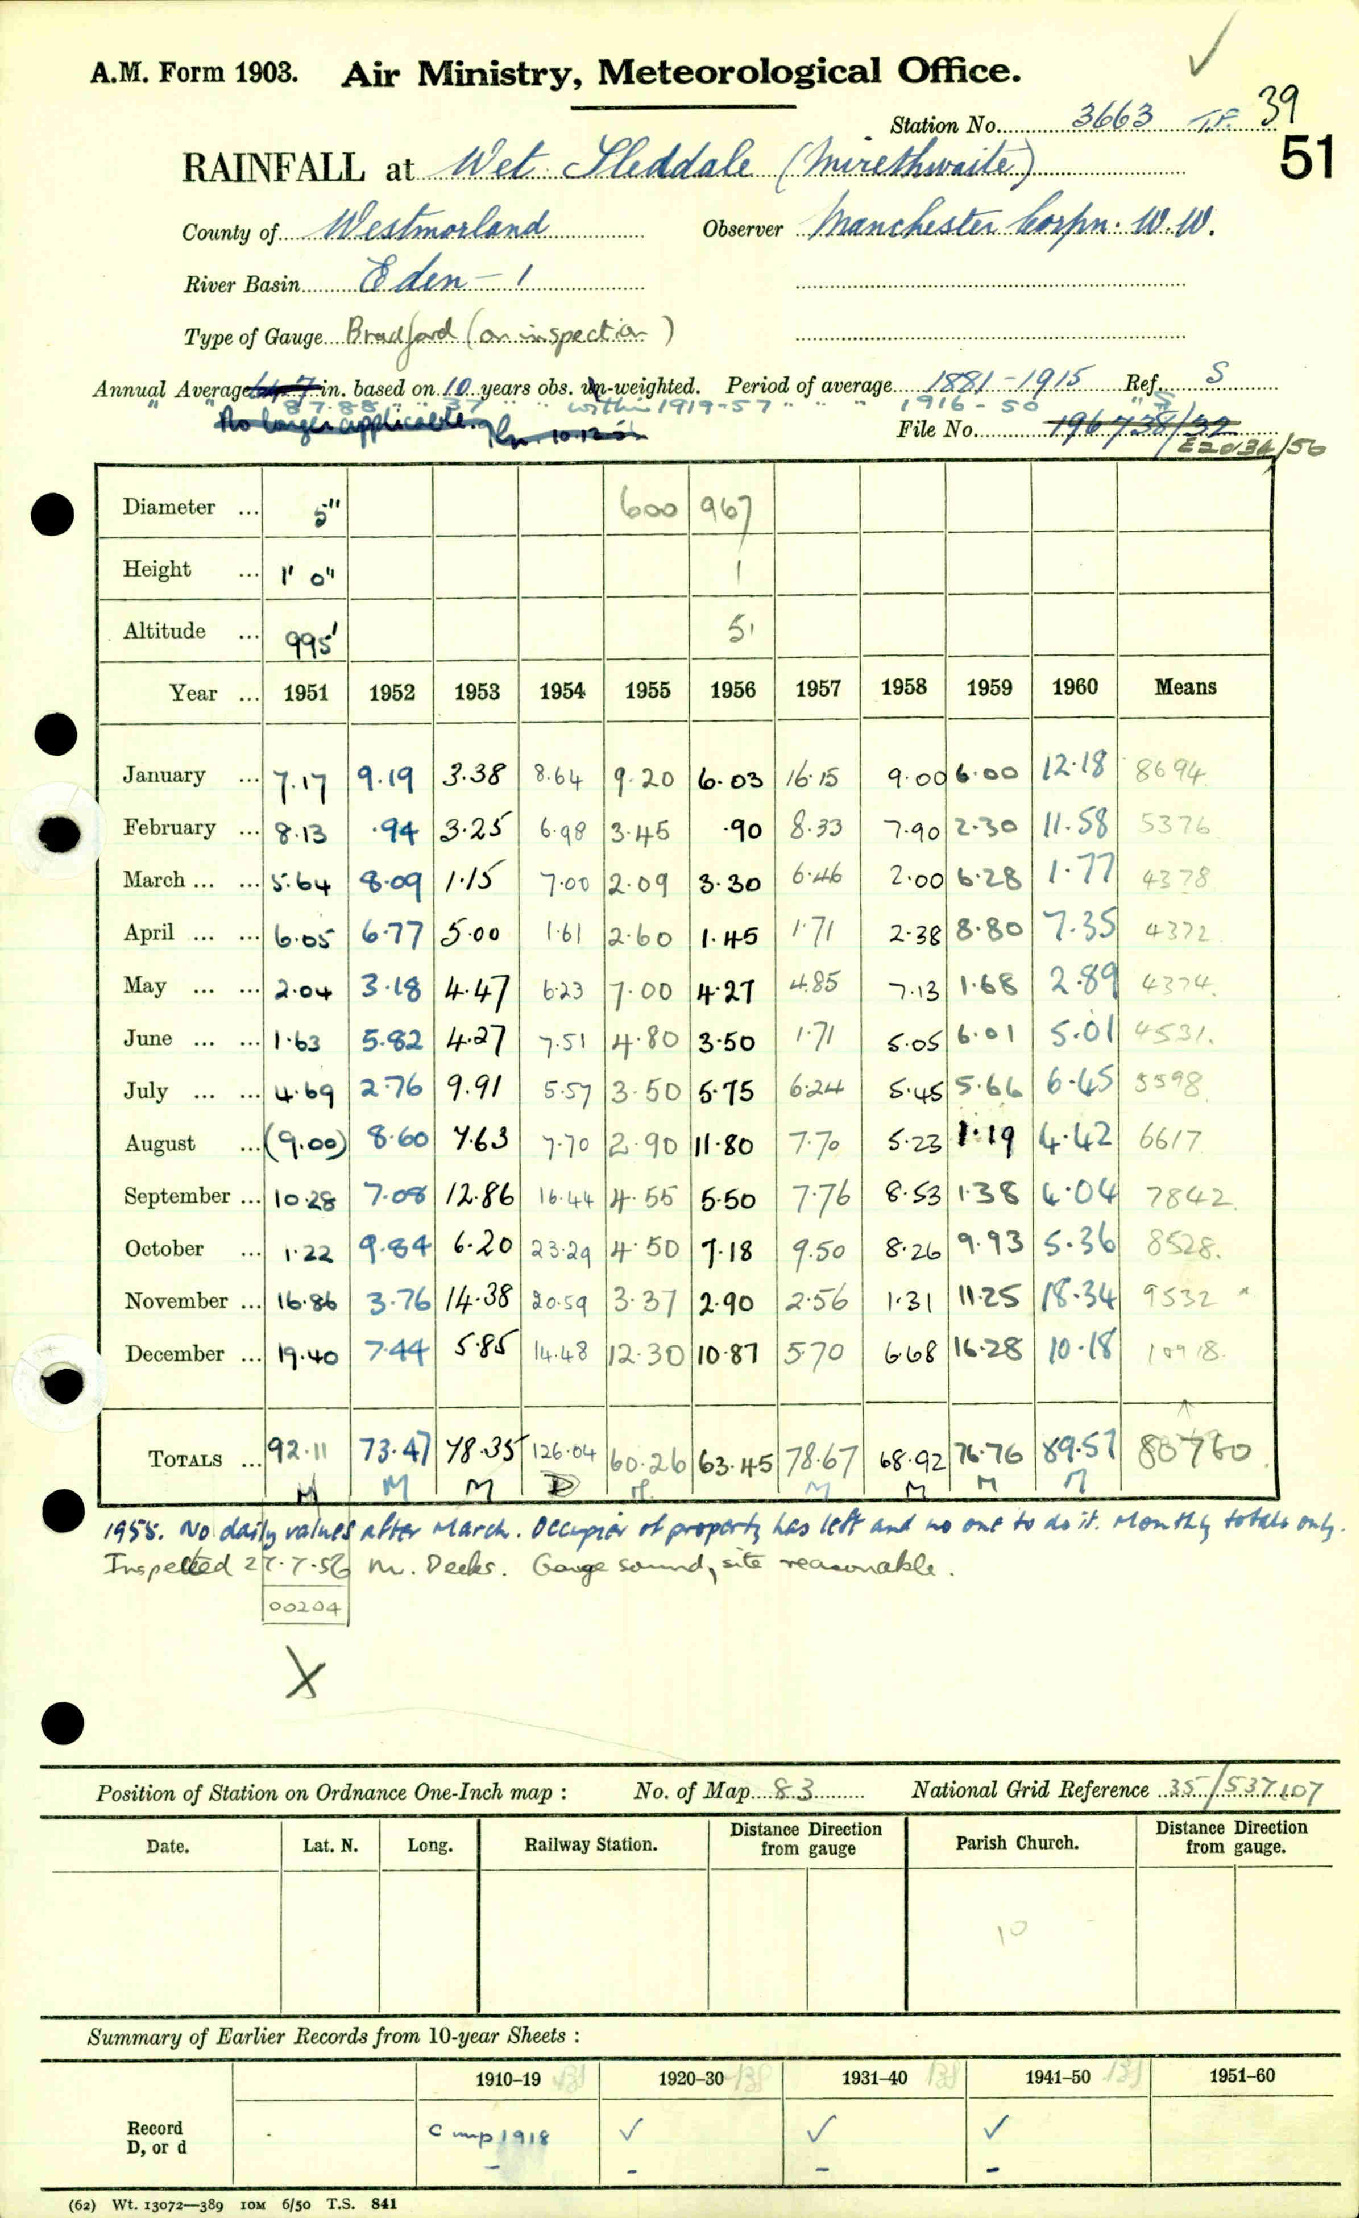 A.M. Form 1903. Air Ministry, Meteorological Office.
Station No. 3663 T.P. 39
RAINFALL at Wet Sleddale (Mirethwaite) 51
County of Westmorland Observer Manchester Corpn. W.W.
River Basin Eden - 1
Type of Gauge Bradford (on inspection)
Annual Average in. based on 10 years obs. un-weighted. Period of average 1881-1915 Ref. S
" " 87.88 " " 37 " " within 1919-57 " " " 1916-50 " S
No longer applicable. 10.12.51 File No. 196738/32
E20134/56
Diameter ... 5" 600 967
Height ... 1' 0" 1
Altitude ... 995' 51
Year ... 1951 1952 1953 1954 1955 1956 1957 1958 1959 1960 Means
January ... 7.17 9.19 3.38 8.64 9.20 6.03 16.15 9.00 6.00 12.18 8694
February ... 8.13 .94 3.25 6.98 3.45 .90 8.33 7.90 2.30 11.58 5376
March ... ... 5.64 8.09 1.15 7.00 2.09 3.30 6.46 2.00 6.28 1.77 4378
April ... ... 6.05 6.77 5.00 1.61 2.60 1.45 1.71 2.38 8.80 7.35 4372
May ... ... 2.04 3.18 4.47 6.23 7.00 4.27 4.85 7.13 1.68 2.89 4374.
June ... ... 1.63 5.82 4.27 7.51 4.80 3.50 1.71 5.05 6.01 5.01 4531.
July ... ... 4.69 2.76 9.91 5.57 3.50 5.75 6.24 5.45 5.66 6.45 5598
August ... (9.00) 8.60 7.63 7.70 2.90 11.80 7.70 5.23 1.19 4.42 6617
September ... 10.28 7.08 12.86 16.44 4.55 5.50 7.76 8.53 1.38 4.04 7842.
October ... 1.22 9.84 6.20 23.29 4.50 7.18 9.50 8.26 9.93 5.36 8528.
November ... 16.86 3.76 14.38 20.59 3.37 2.90 2.56 1.31 11.25 18.34 9532 *
December ... 19.40 7.44 5.85 14.48 12.30 10.87 5.70 6.68 16.28 10.18 10918.
TOTALS ... 92.11 73.47 78.35 126.04 60.26 63.45 78.67 68.92 76.76 89.57 80760
M M M D M M M M M
1955. No daily values after March. Occupier of property has left and no one to do it. Monthly totals only.
Inspected 27.7.56 M. Deeks. Gauge sound, site reasonable.
00204
X
Position of Station on Ordnance One-Inch map : No. of Map 83 National Grid Reference 35/537107
Date. Lat. N. Long. Railway Station. Distance from gauge Direction Parish Church. Distance from gauge. Direction
10
Summary of Earlier Records from 10-year Sheets :
1910-19 1920-30 1931-40 1941-50 1951-60
Record D, or d Cmp 1918 ✓ ✓ ✓
- - - -
(62) Wt. 13072—389 10M 6/50 T.S. 841